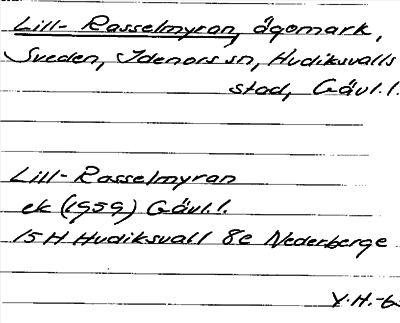 Lill-Rasselmyran, ägomark,
Sveden, Idenors sn, Hudiksvalls
stad, Gävl.l.
Lill-Rasselmyran
ek (1959) Gävl.l.
15H Hudiksvall 8e Nederberge
V.H.-6